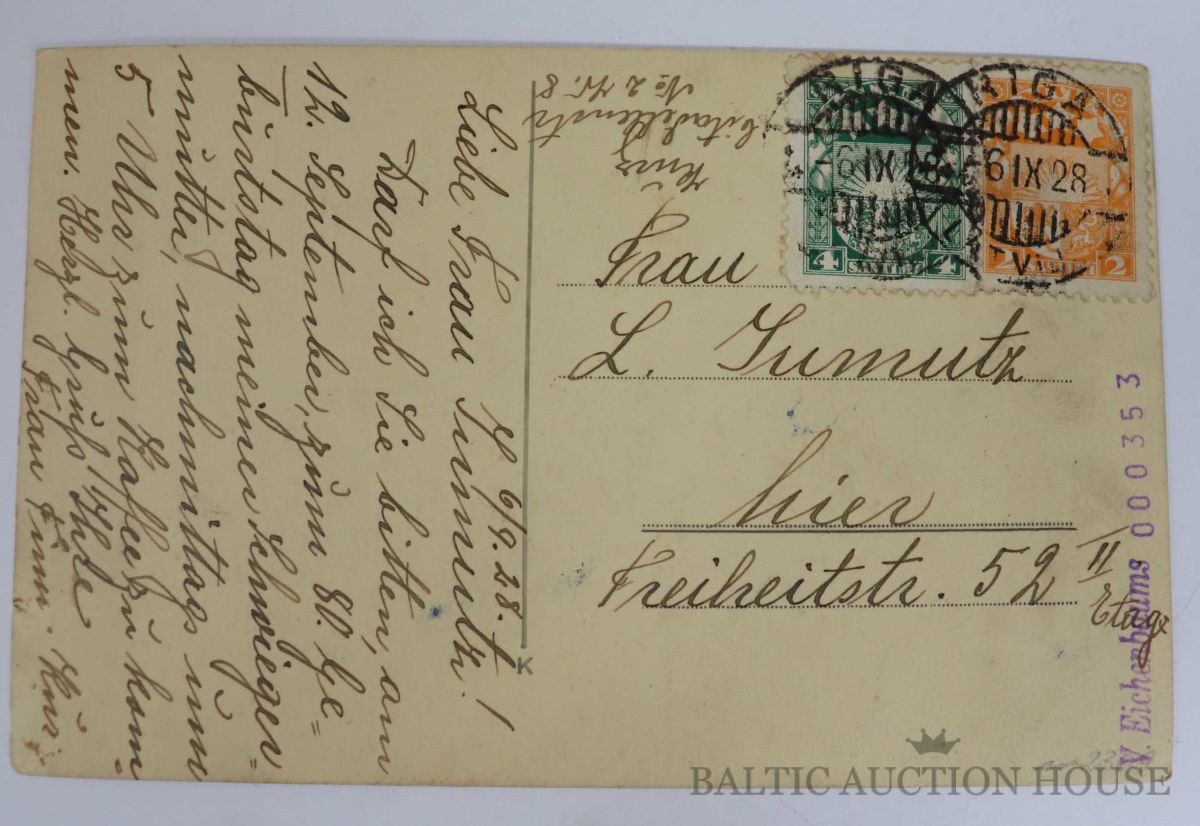 6/9.28.
Liebe Frau Tumutz!
Darf ich Sie bitten, am
12. September, zum 80. Ge=
burtstag meiner Schwieger=
mutter, nachmittags um
5 Uhr zum Kaffee zu kom=
men. Herzl. Gruß Ihre
Frau
Citadellenstr
№ 2 Kv. 8
K
RIGA
6 IX 28
LATVIJA
4 SANTIMI 4
RIGA
6 IX 28
LATVIJA
2
Frau
L. Tumutz
hier
Freiheitstr. 52 II
Etage
V. Eichenbaums 000353
BALTIC AUCTION HOUSE